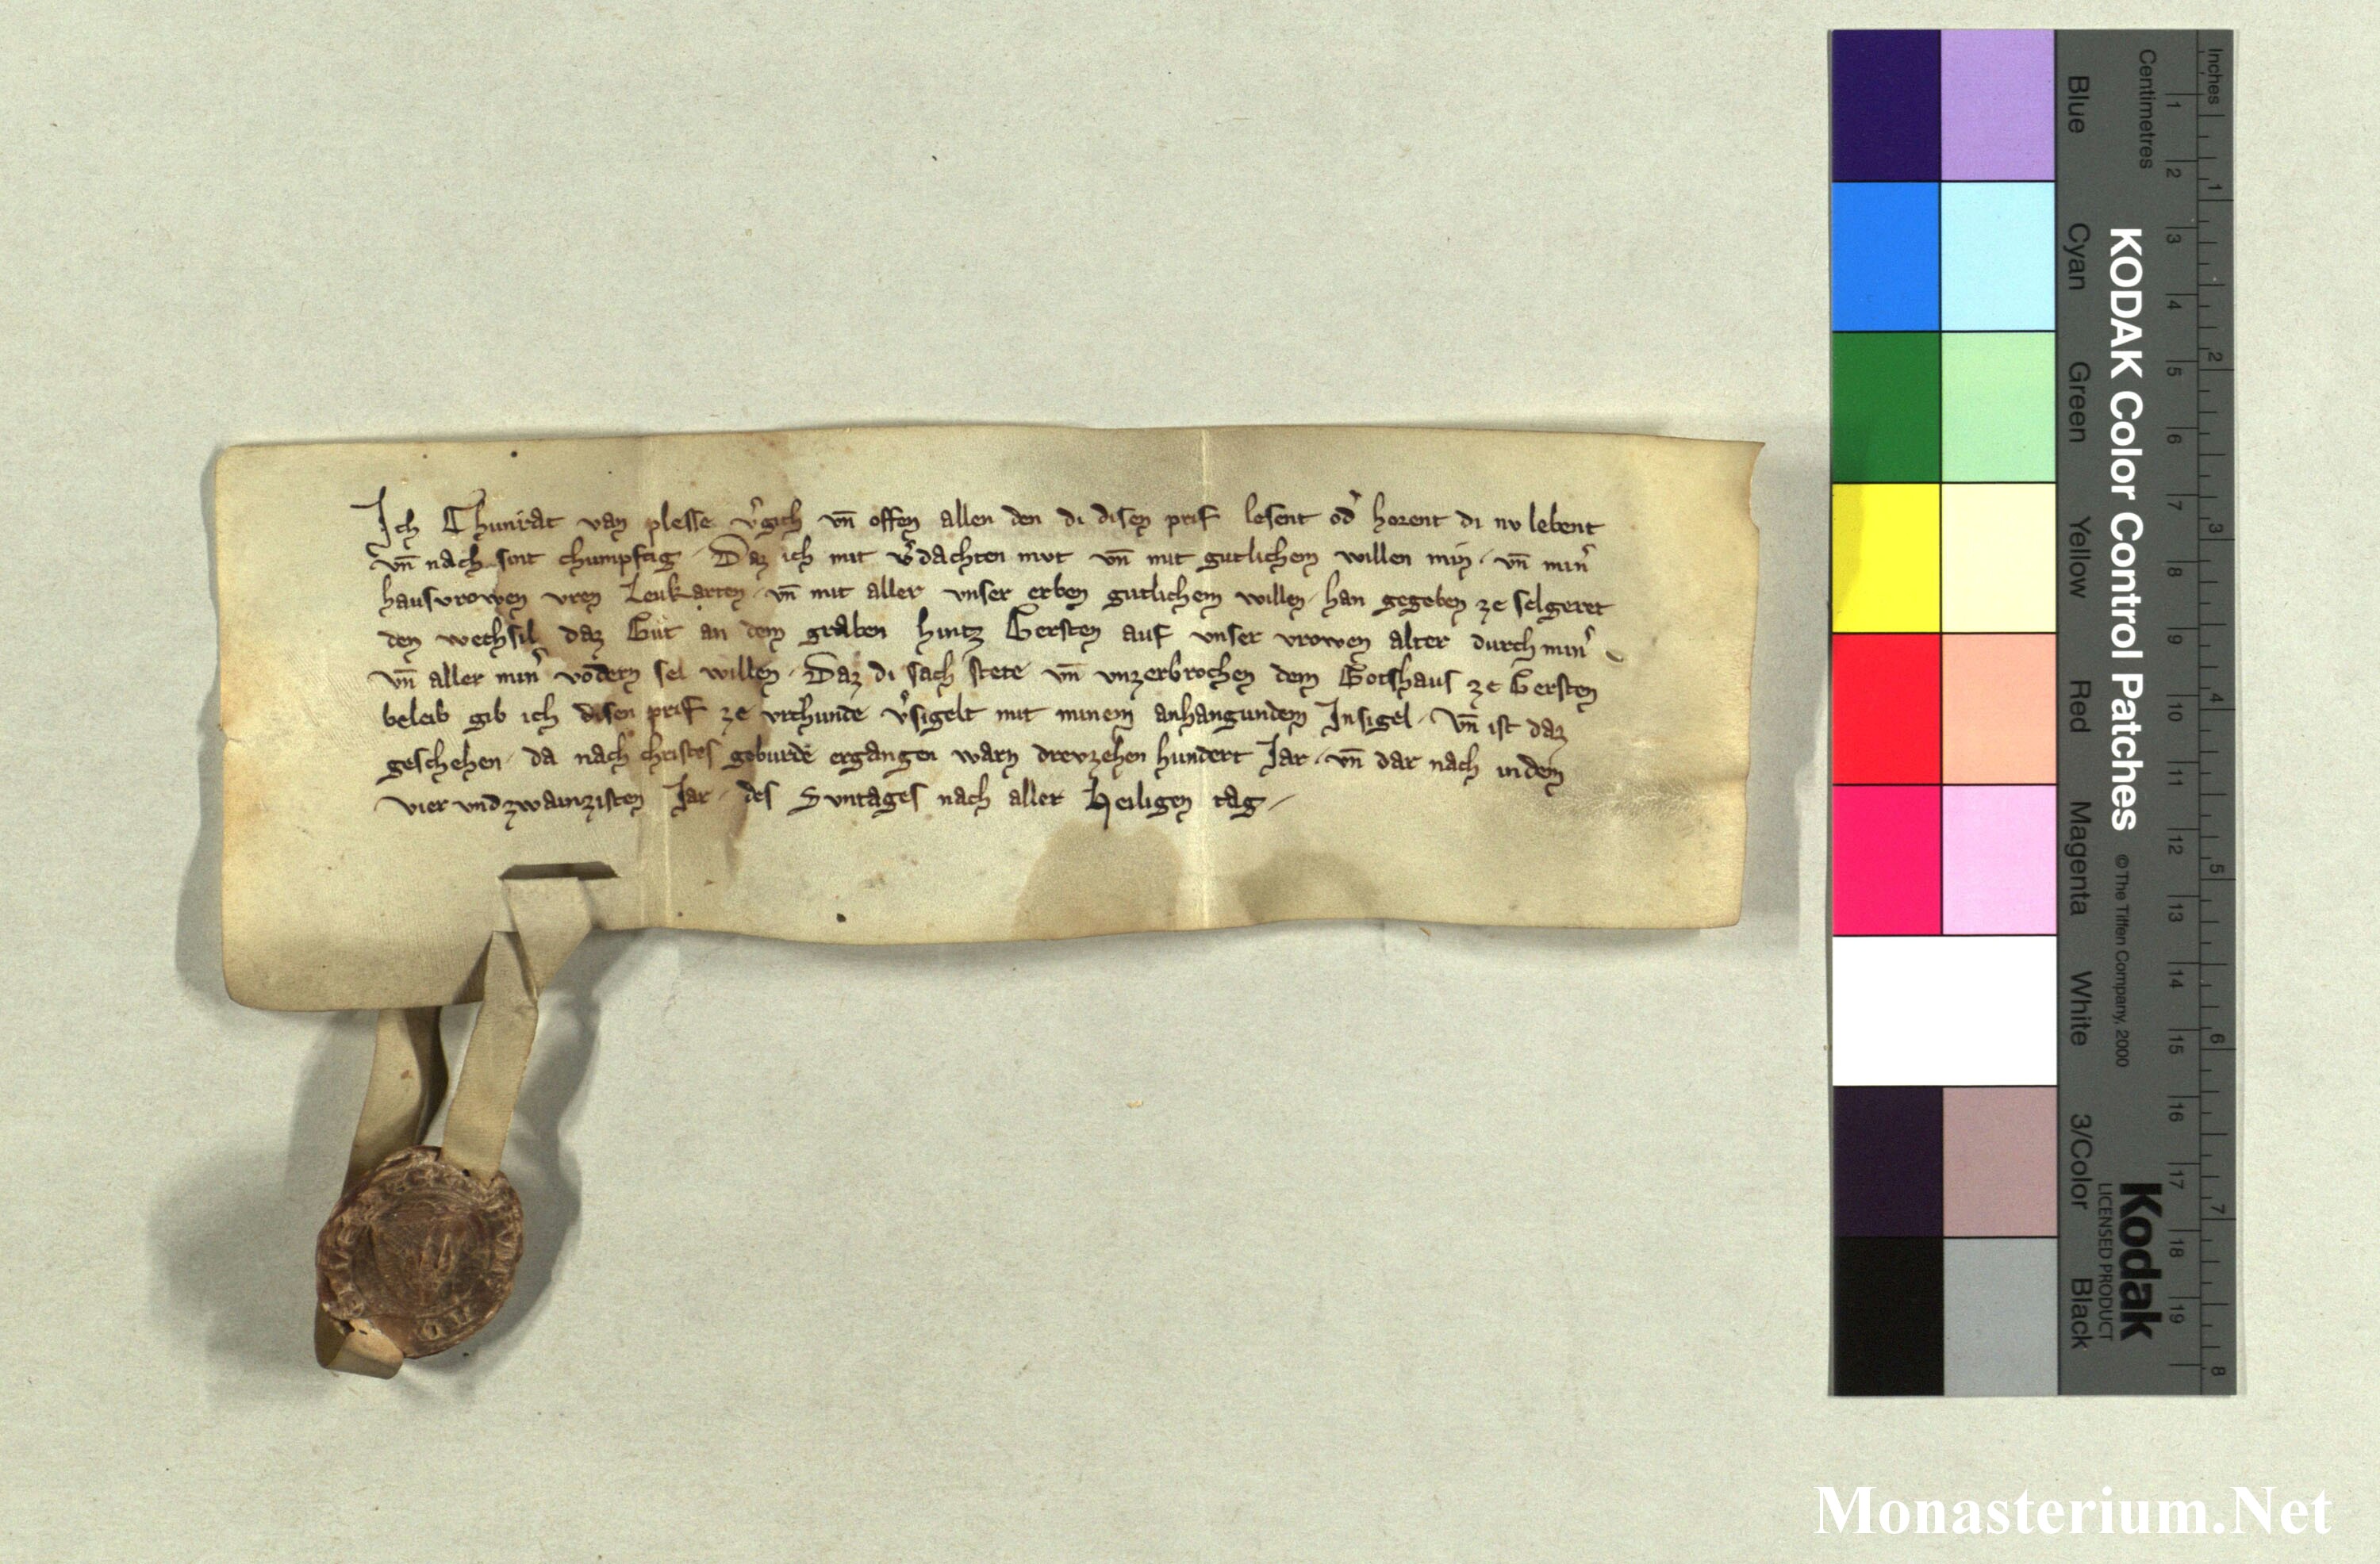 Ich Chunrat van plesse v᷎gich vn̄ offen allen den di disen prif lesent od᷎ horent di nv lebent
vn̄ nach sint chumpftig · Daz ich mit v᷎dachten mvt vn̄ mit gutlichem willen min · vn̄ min᷎
hausvrowen vren Leukarten · vn̄ mit aller vnser erben gutlichem willen · han gegeben ze selgeret
den wechsil daz Gut an dem graben hintz Gersten auf vnser vrowen alter durch min᷎
vn̄ aller min᷎ vodern sel willen · Daz di sach stete vn̄ vnzerbrochen dem Gotshaus ze Gersten
beleib gib ich disen prif ze vrchunde v᷎sigelt mit minem anhangundem Insigel · Vn̄ ist daz
geschehen · da nach christes geburde ergangen warn drevzehen hundert Jar · vn̄ dar nach in dem
vier vnd zwainzisten Jar · des Svntages nach aller Heiligen tag ·
Inches
Centimetres
1 2 3 4 5 6 7 8 9 10 11 12 13 14 15 16 17 18 19
1 2 3 4 5 6 7 8
KODAK Color Control Patches © The Tiffen Company, 2000
Kodak
LICENSED PRODUCT
Blue Cyan Green Yellow Red Magenta White 3/Color Black
Monasterium.Net